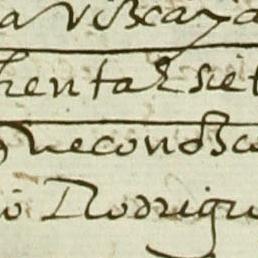 a viscaya
henta & siet
q necondsc
io Rodrigu